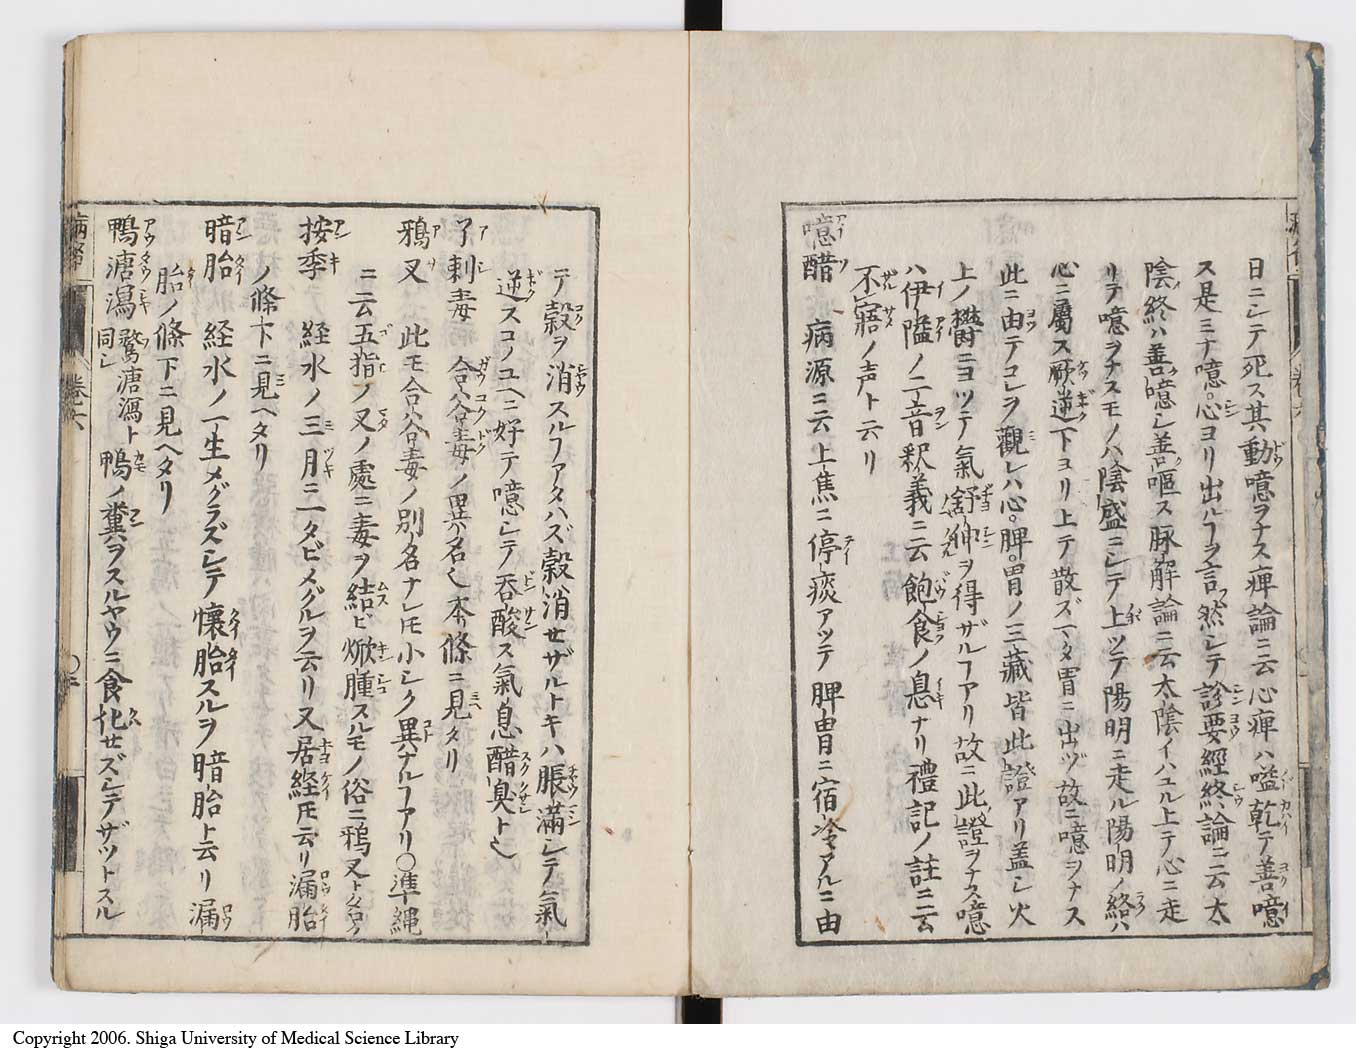 日ニシテ死ス其動噫ヲナス痺論ニ云心痺ハ嗌乾テ善噫
ス是ミナ噫心ヨリ出ルヿヲ言然シテ診要經終論ニ云太
陰終ハ善噫シ善嘔ス脉解論ニ云太陰イハユル上テ心ニ走
リテ噫ヲナスモノハ陰盛ニシテ上ツテ陽明ニ走ル陽明ノ絡ハ
心ニ屬ス厥逆下ヨリ上テ散ズマタ胃ニ出ヅ故ニ噫ヲナス
此ニ由テコレヲ觀レハ心。脾。胃ノ三藏皆此證アリ盖シ火
上ノ欝ニヨツテ氣舒伸ヲ得ザルヿアリ故ニ此證ヲナス噫
ハ伊隘ノ二音釈義ニ云飽食ノ息ナリ禮記ノ註ニ云
不寤ノ声ト云リ
噫醋 病源ニ云上焦ニ停痰アツテ脾胃ニ宿冷アルニ由
テ穀ヲ消スルヿアタハズ穀消セザルトキハ脹滿シテ氣
逆スコノユヘニ好テ噫シテ呑酸ス氣息醋臭ト也
了刺毒 合谷毒ノ異名也本條ニ見タリ
鴉叉 此モ合谷毒ノ別名ナレモ小シク異ナルヿアリ〇準縄
ニ云五指ノ叉ノ處ニ毒ヲ結ビ焮腫スルモノ俗ニ鴉叉ト名ク
按季 経水ノ三月ニ一タビメグルヲ云リ又居経モ云リ漏胎
ノ條下ニ見ヘタリ
暗胎 経水ノ一生メグラズシテ懐胎スルヲ暗胎ト云リ漏
胎ノ條下ニ見ヘタリ
鴨溏瀉 鶩溏瀉ト同シ 鴨ノ糞ヲスルヤウニ食化セズシテザットスル
卷六